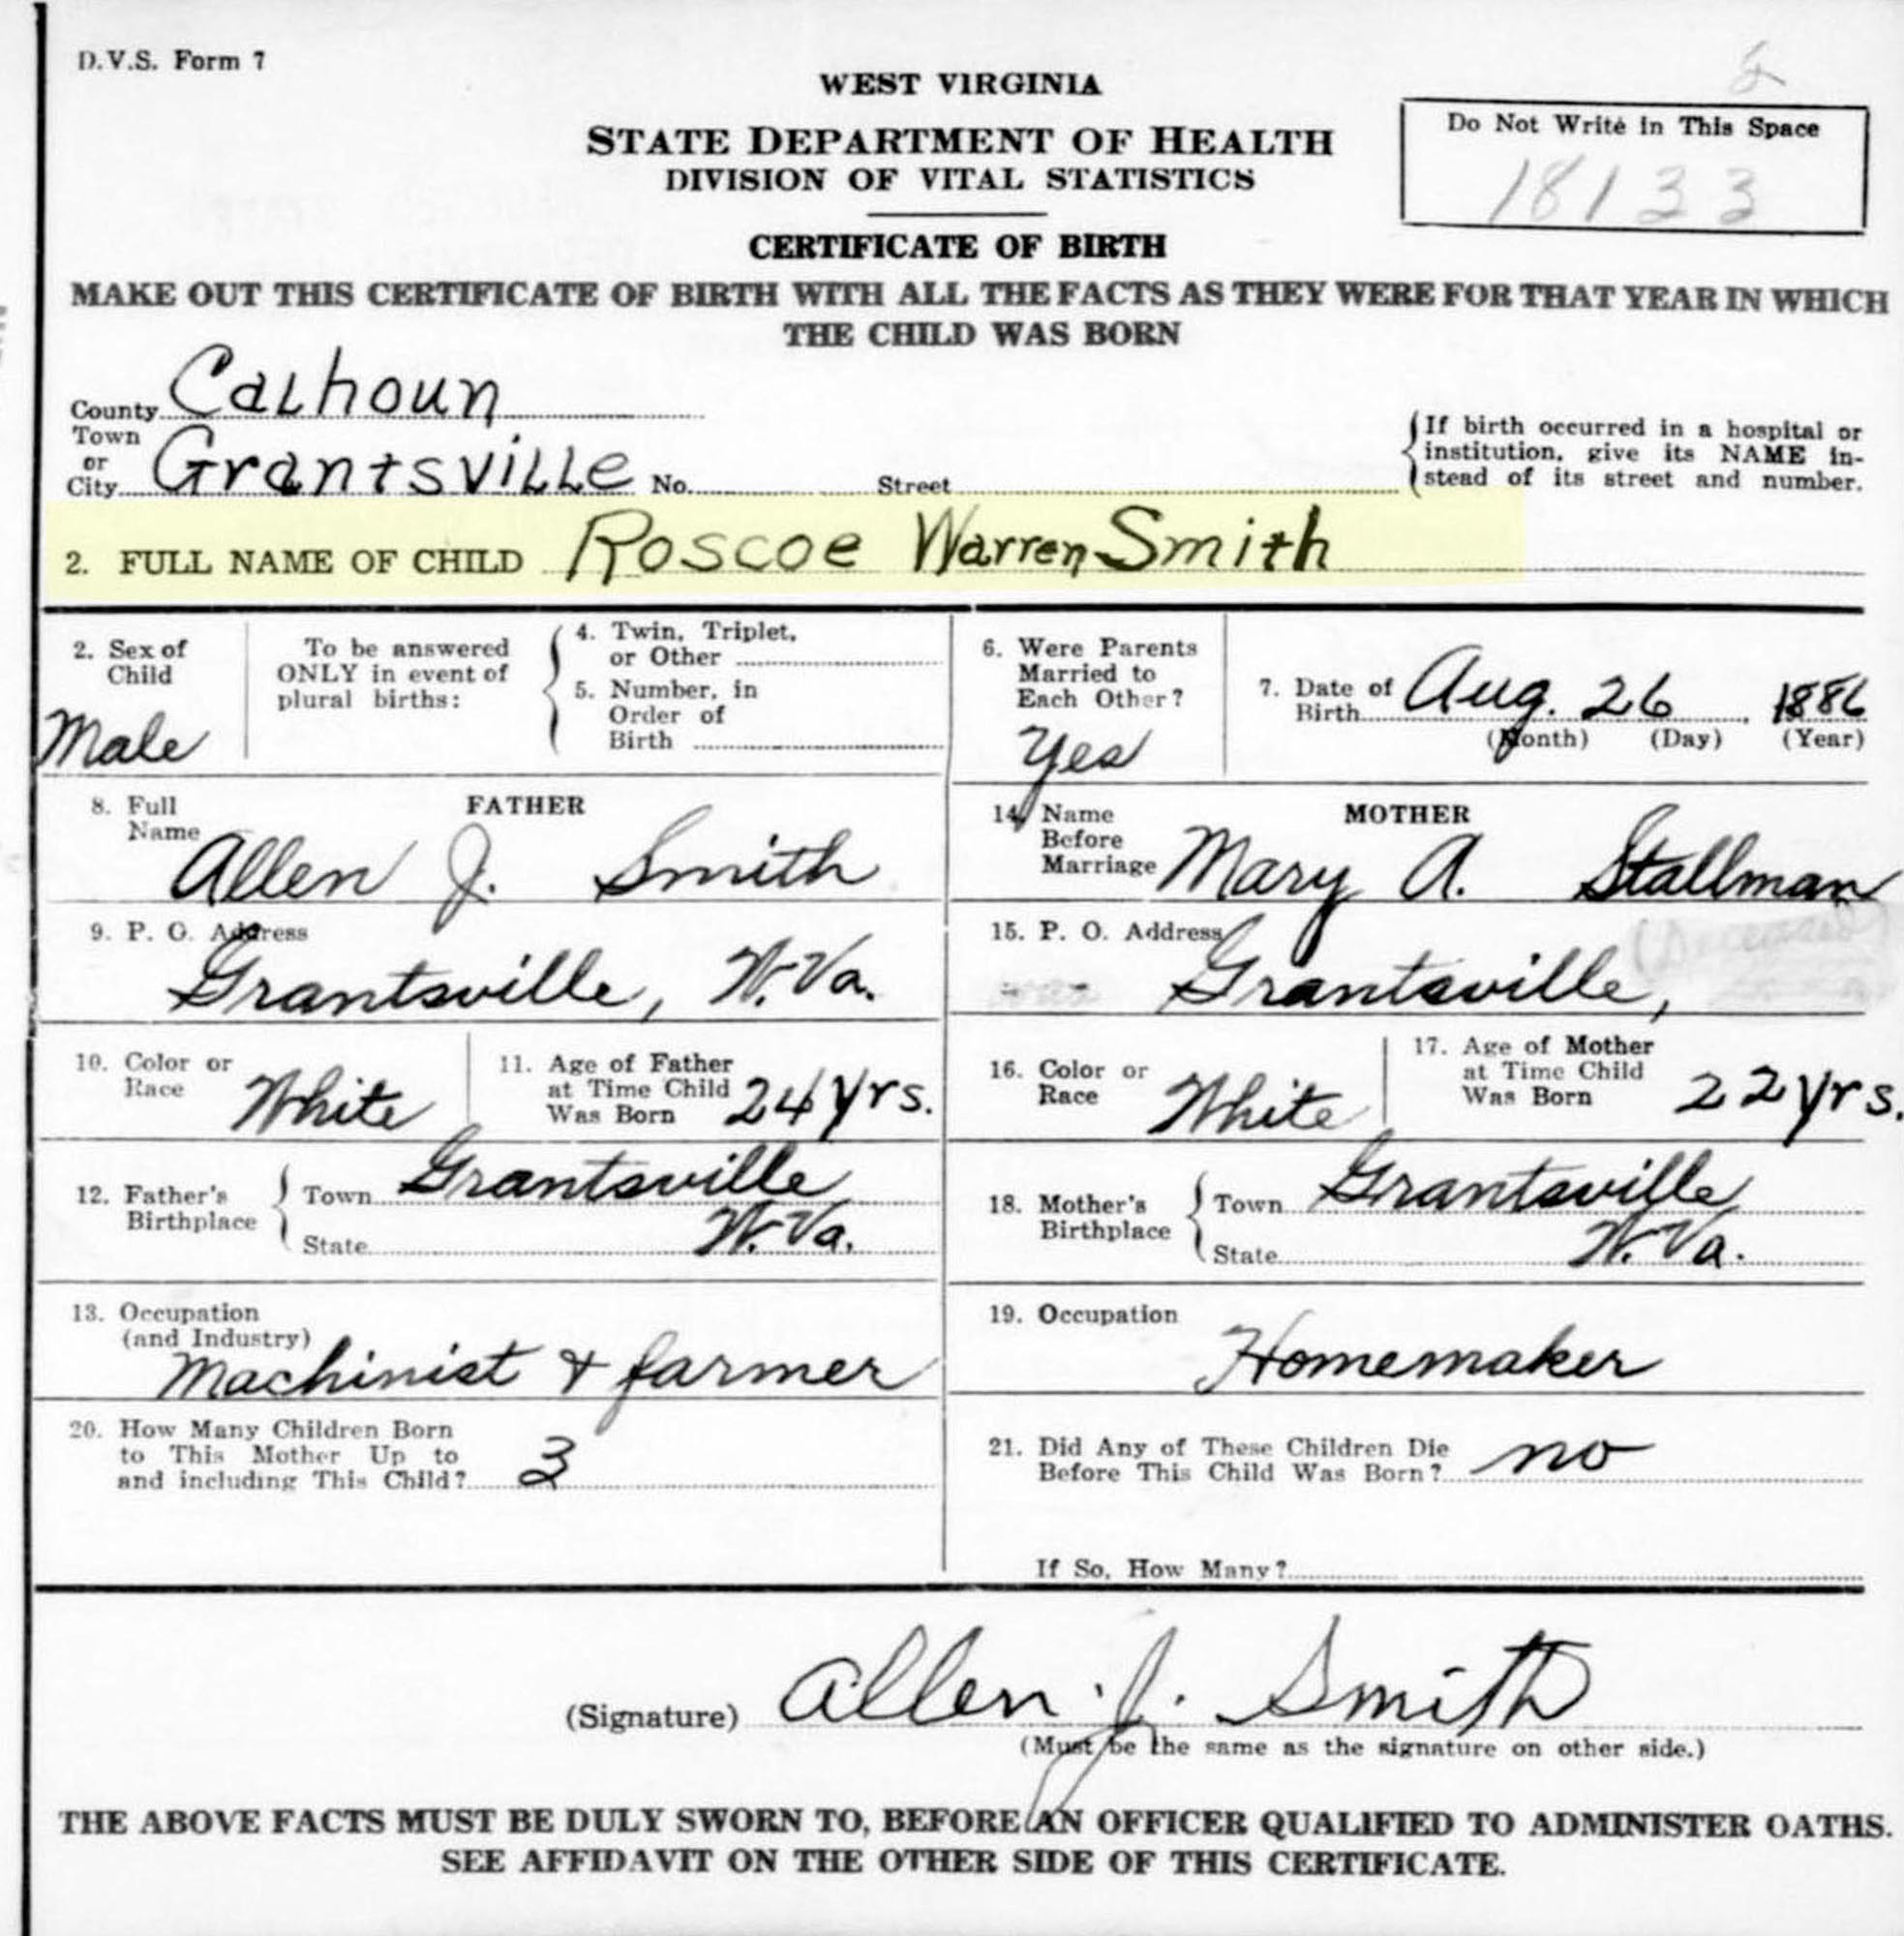 D.V.S. Form 7
WEST VIRGINIA
STATE DEPARTMENT OF HEALTH
DIVISION OF VITAL STATISTICS
Do Not Write in This Space
18133
CERTIFICATE OF BIRTH
MAKE OUT THIS CERTIFICATE OF BIRTH WITH ALL THE FACTS AS THEY WERE FOR THAT YEAR IN WHICH
THE CHILD WAS BORN
County Calhoun
Town or City Grantsville No. Street
If birth occurred in a hospital or
institution, give its NAME in-
stead of its street and number.
2. FULL NAME OF CHILD Roscoe Warren Smith
2. Sex of
Child
Male
To be answered
ONLY in event of
plural births:
4. Twin, Triplet,
or Other
5. Number, in
Order of
Birth
6. Were Parents
Married to
Each Other?
Yes
7. Date of
Birth Aug. 26, 1886
(Month) (Day) (Year)
8. Full
Name
FATHER
Allen J. Smith
14. Name
Before
Marriage
MOTHER
Mary A. Stallman
9. P. O. Address
Grantsville, W. Va.
15. P. O. Address
(Deceased)
Grantsville,
10. Color or
Race White
11. Age of Father
at Time Child
Was Born 24 yrs.
16. Color or
Race White
17. Age of Mother
at Time Child
Was Born 22 yrs.
12. Father's
Birthplace
Town Grantsville
State W. Va.
18. Mother's
Birthplace
Town Grantsville
State W. Va.
13. Occupation
(and Industry)
Machinist & farmer
19. Occupation
Homemaker
20. How Many Children Born
to This Mother Up to
and including This Child? 3
21. Did Any of These Children Die
Before This Child Was Born? no
If So, How Many?
(Signature) Allen J. Smith
(Must be the same as the signature on other side.)
THE ABOVE FACTS MUST BE DULY SWORN TO, BEFORE AN OFFICER QUALIFIED TO ADMINISTER OATHS.
SEE AFFIDAVIT ON THE OTHER SIDE OF THIS CERTIFICATE.